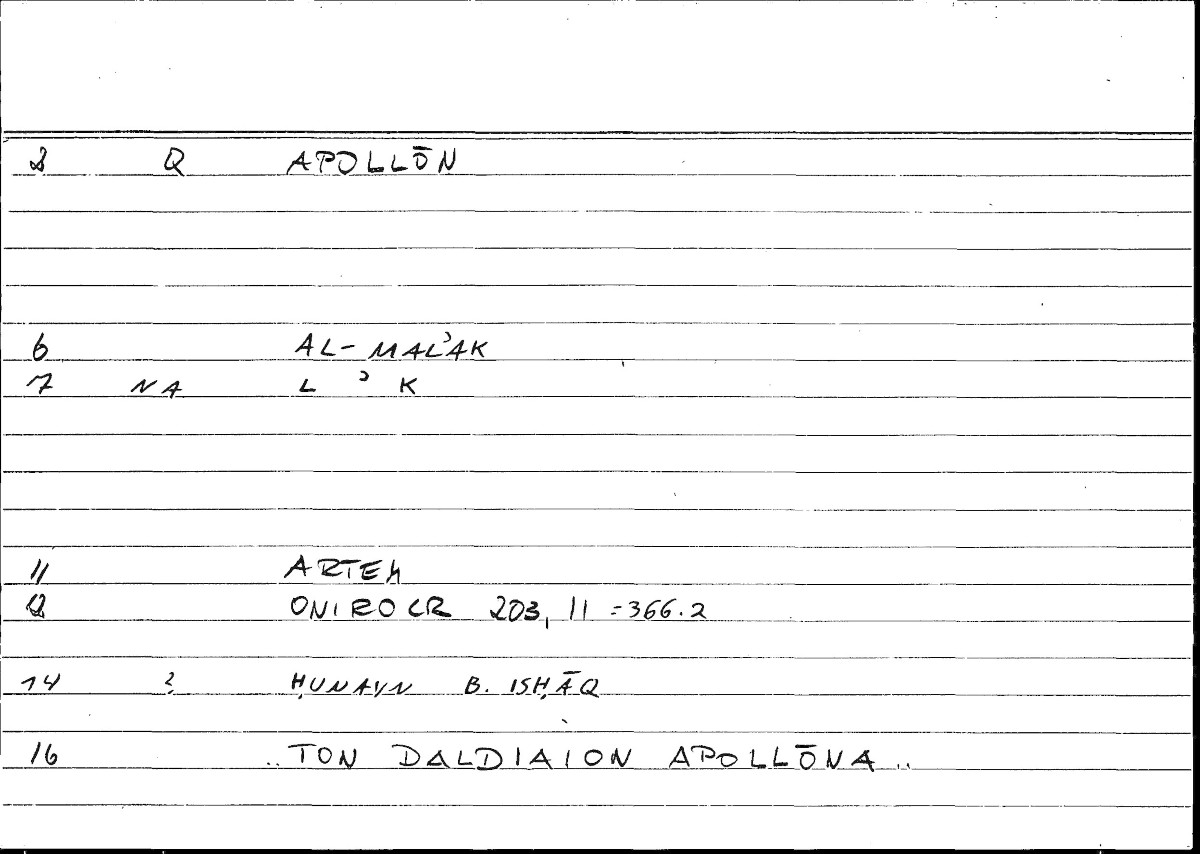 2 Q APOLLŌN
6 AL-MALʾAK
7 NA L ʾ K
11 ARTEM
12 ONIROCR 203, 11 =366.2
14 2 ḤUNAYN B. ISḤĀQ
16 ..TON DALDIAION APOLLŌNA..